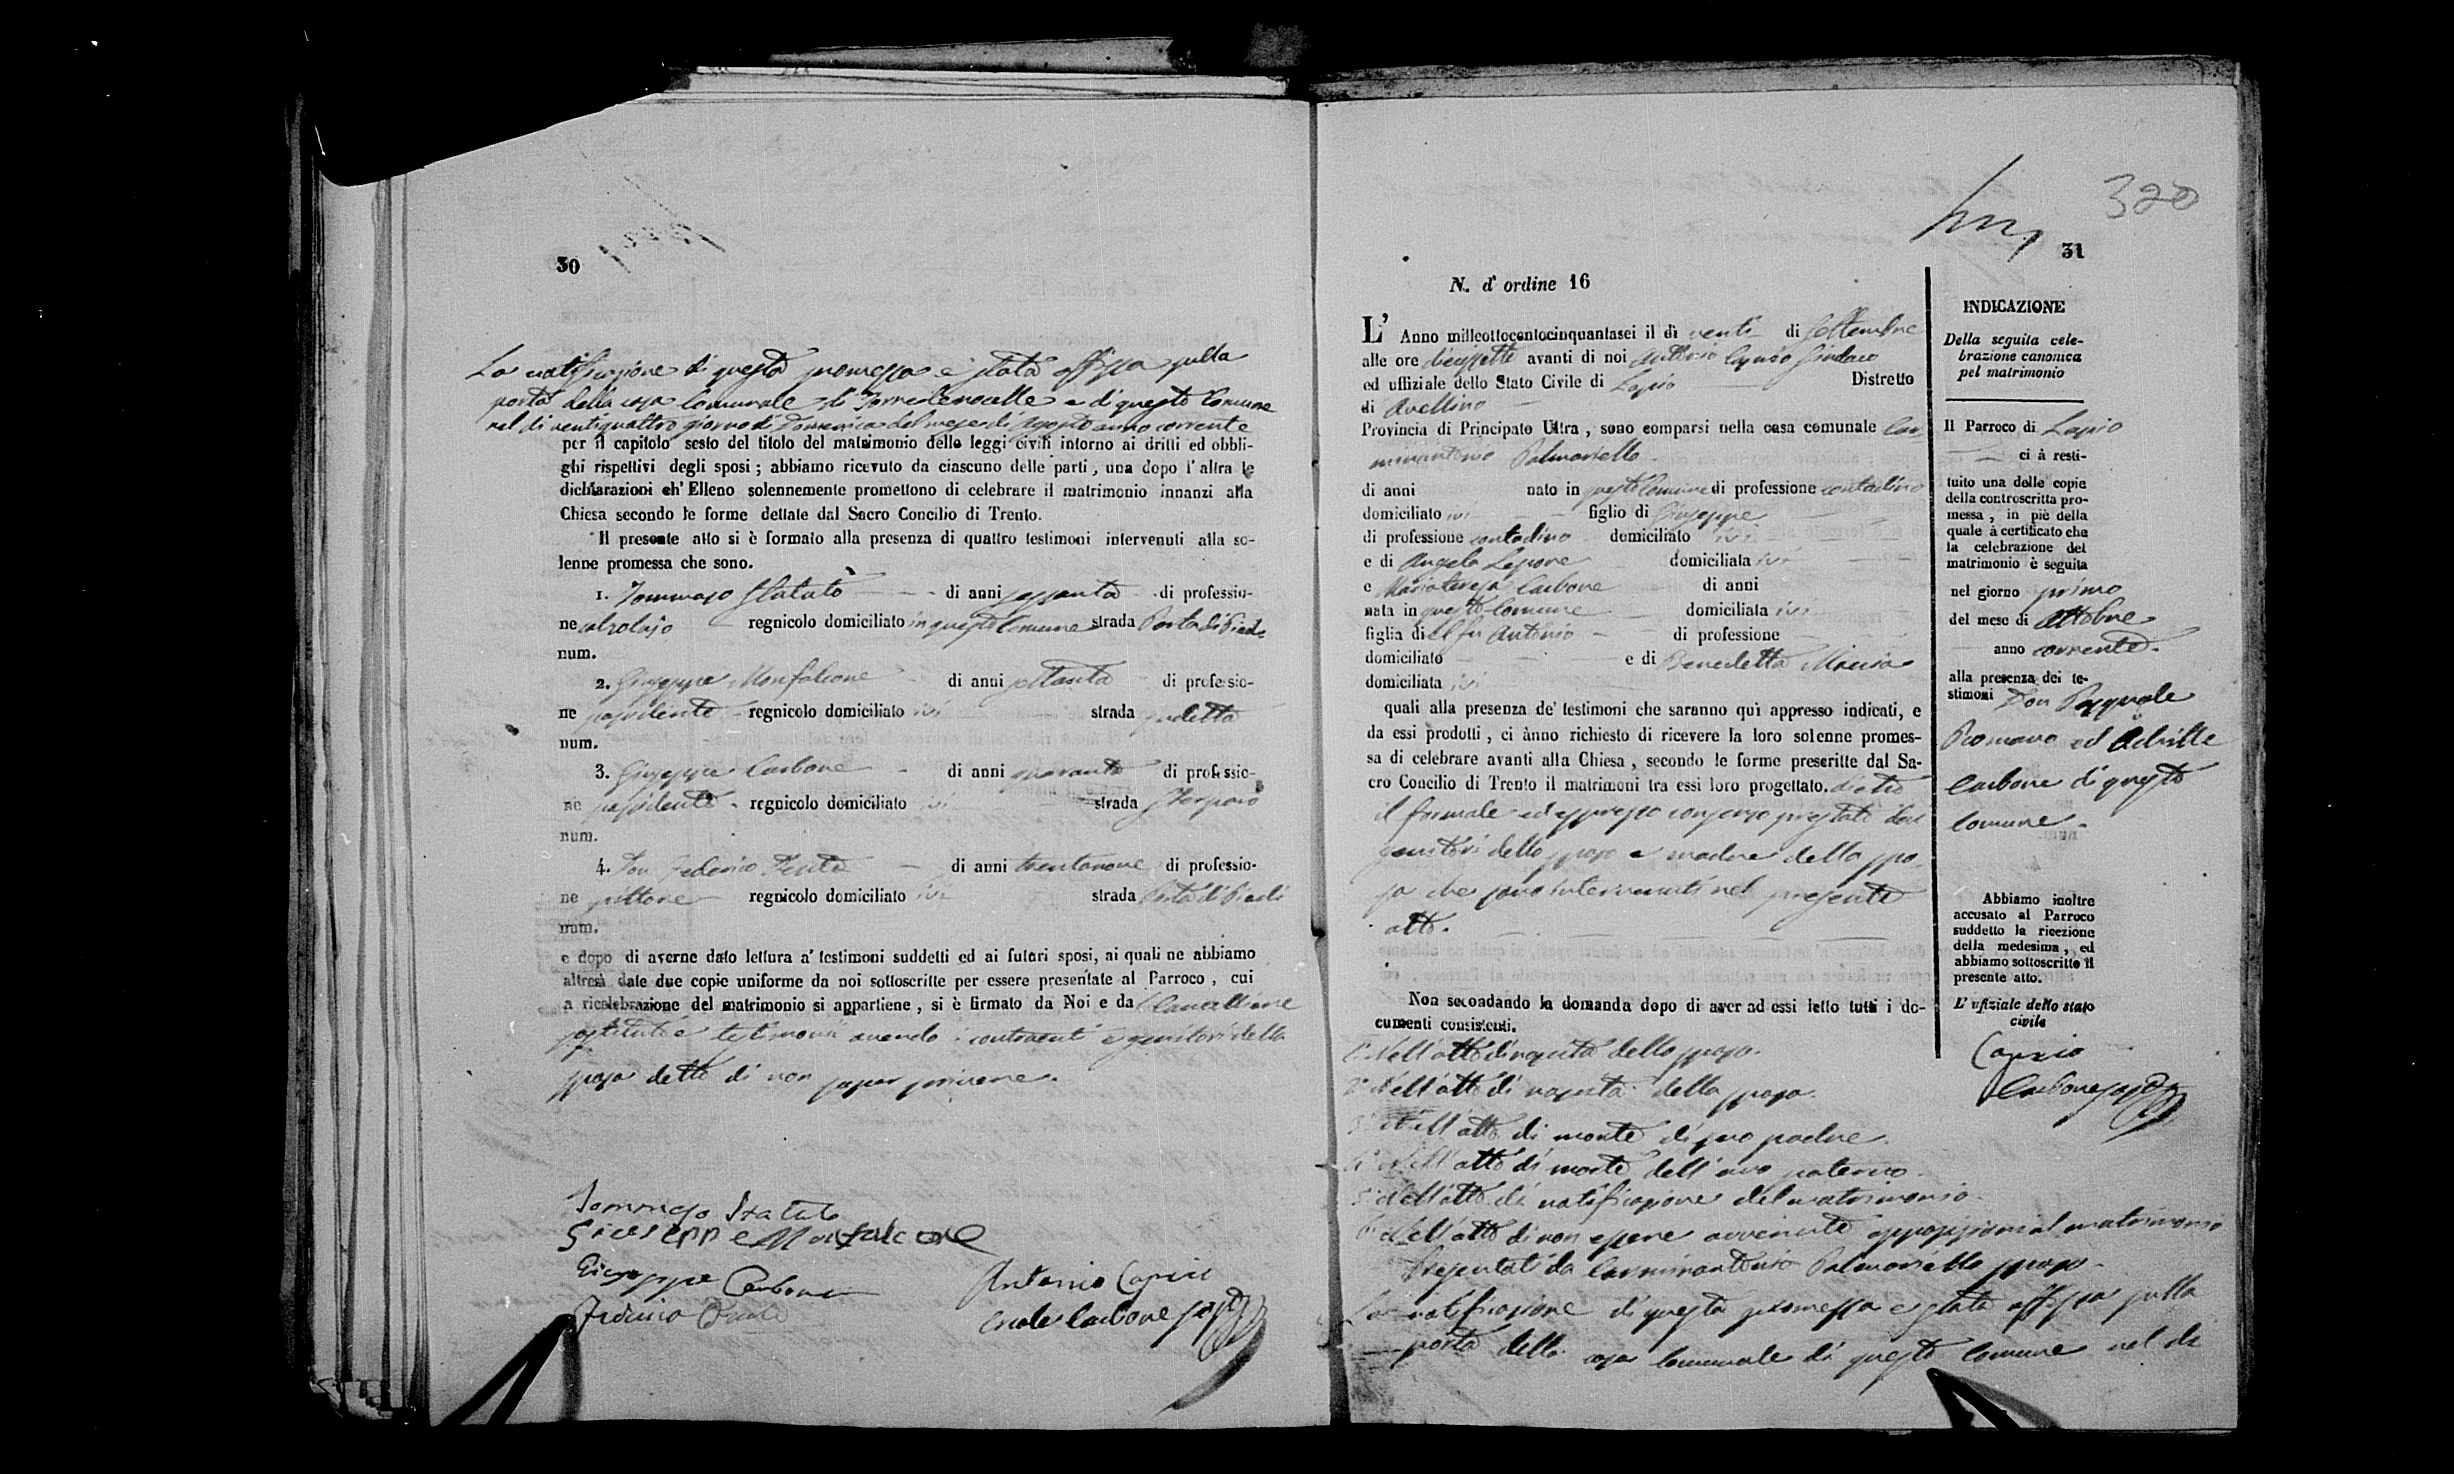 30
La notificazione di questa promessa è stata affissa sulla
porta della casa Comunale di Torrelenocelle e di questo Comune
nel dì ventiquattro giorno di Domenica del mese di Agosto anno corrente
per il capitolo sesto del titolo del matrimonio delle leggi civili intorno ai dritti ed obbli-
ghi rispettivi degli sposi ; abbiamo ricevuto da ciascuno delle parti , una dopo l' altra le
dichiarazioni ch' Elleno solennemente promettono di celebrare il matrimonio innanzi alla
Chiesa secondo le forme dettate dal Sacro Concilio di Trento.
Il presente atto si è formato alla presenza di quattro testimoni intervenuti alla so-
lenne promessa che sono.
1. Tommaso Statuto di anni sessanta di professio-
ne calzolajo regnicolo domiciliato in questo Comune strada Porta di Piedi
num.
2. Giuseppe Monfalcone di anni settanta di professio-
ne possidente regnicolo domiciliato ivi strada
num.
3. Giuseppe Carbone di anni quaranta di professio-
ne possidente regnicolo domiciliato ivi strada
num.
4. Don Federico di anni trentanove di professio-
ne pittore regnicolo domiciliato ivi strada Porta di Piedi
num.
e dopo di averne dato lettura a' testimoni suddetti ed ai futuri sposi, ai quali ne abbiamo
altresì date due copie uniforme da noi sottoscritte per essere presentate al Parroco , cui
a ricelebrazione del matrimonio si appartiene , si è firmato da Noi e da Cancelliere
sostituto e testimoni avendo i contraenti e genitori della
sposa detto di non saper scrivere.
Tommaso Statuto
Giuseppe Monfalcone
Giuseppe Carbone
Federico
Antonio Caprio
Carbone
320
31
N. d' ordine 16
L' Anno milleottocentocinquantasei il dì venti di Settembre
alle ore diecissette avanti di noi Antonio Caprio Sindaco
ed uffiziale dello Stato Civile di Lapio Distretto
di Avellino
Provincia di Principato Ultra , sono comparsi nella casa comunale Car-
minantonio Palmariello
di anni nato in questo Comune di professione contadino
domiciliato ivi figlio di Giuseppe
di professione contadino domiciliato ivi
e di Angela Lepore domiciliata ivi
e Mariateresa Carbone di anni
nata in questo Comune domiciliata ivi
figlia di el fu Antonio di professione
domiciliato e di Benedetta
domiciliata ivi
quali alla presenza de' testimoni che saranno quì appresso indicati, e
da essi prodotti , ci ànno richiesto di ricevere la loro solenne promes-
sa di celebrare avanti alla Chiesa , secondo le forme prescritte dal Sa-
cro Concilio di Trento il matrimoni tra essi loro progettato. dietro
il formale ed espresso consenso prestato dai
genitori dello sposo e madre della spo-
sa che sono intervenuti nel presente
atto.
Non secondando la domanda dopo di aver ad essi letto tutti i do-
cumenti consistenti.
1° Nell'atto di nascita dello sposo.
2° Nell'atto di nascita della sposa.
3° Nell'atto di morte di suo padre.
4° Nell'atto di morte dell'avo paterno.
5° Nell'atto di notificazione del matrimonio.
6° Nell'atto di non essere avvenute opposizioni al matrimonio
Presentati da Carminantonio Palmariello sposo.
La notificazione di questa promessa è stata affissa sulla
porta della casa Comunale di questo Comune nel dì
INDICAZIONE
Della seguita cele-
brazione canonica
pel matrimonio
Il Parroco di Lapio
ci à resti-
tuito una delle copie
della controscritta pro-
messa , in piè della
quale à certificato che
la celebrazione del
matrimonio è seguita
nel giorno primo
del mese di Ottobre
anno corrente.
alla presenza dei te-
stimoni Don Pasquale
Romano ed Achille
Carbone di questo
Comune.
Abbiamo inoltre
accusato al Parroco
suddetto la ricezione
della medesima, ed
abbiamo sottoscritto il
presente atto.
L' ufiziale dello stato
civile
Caprio
Carbone